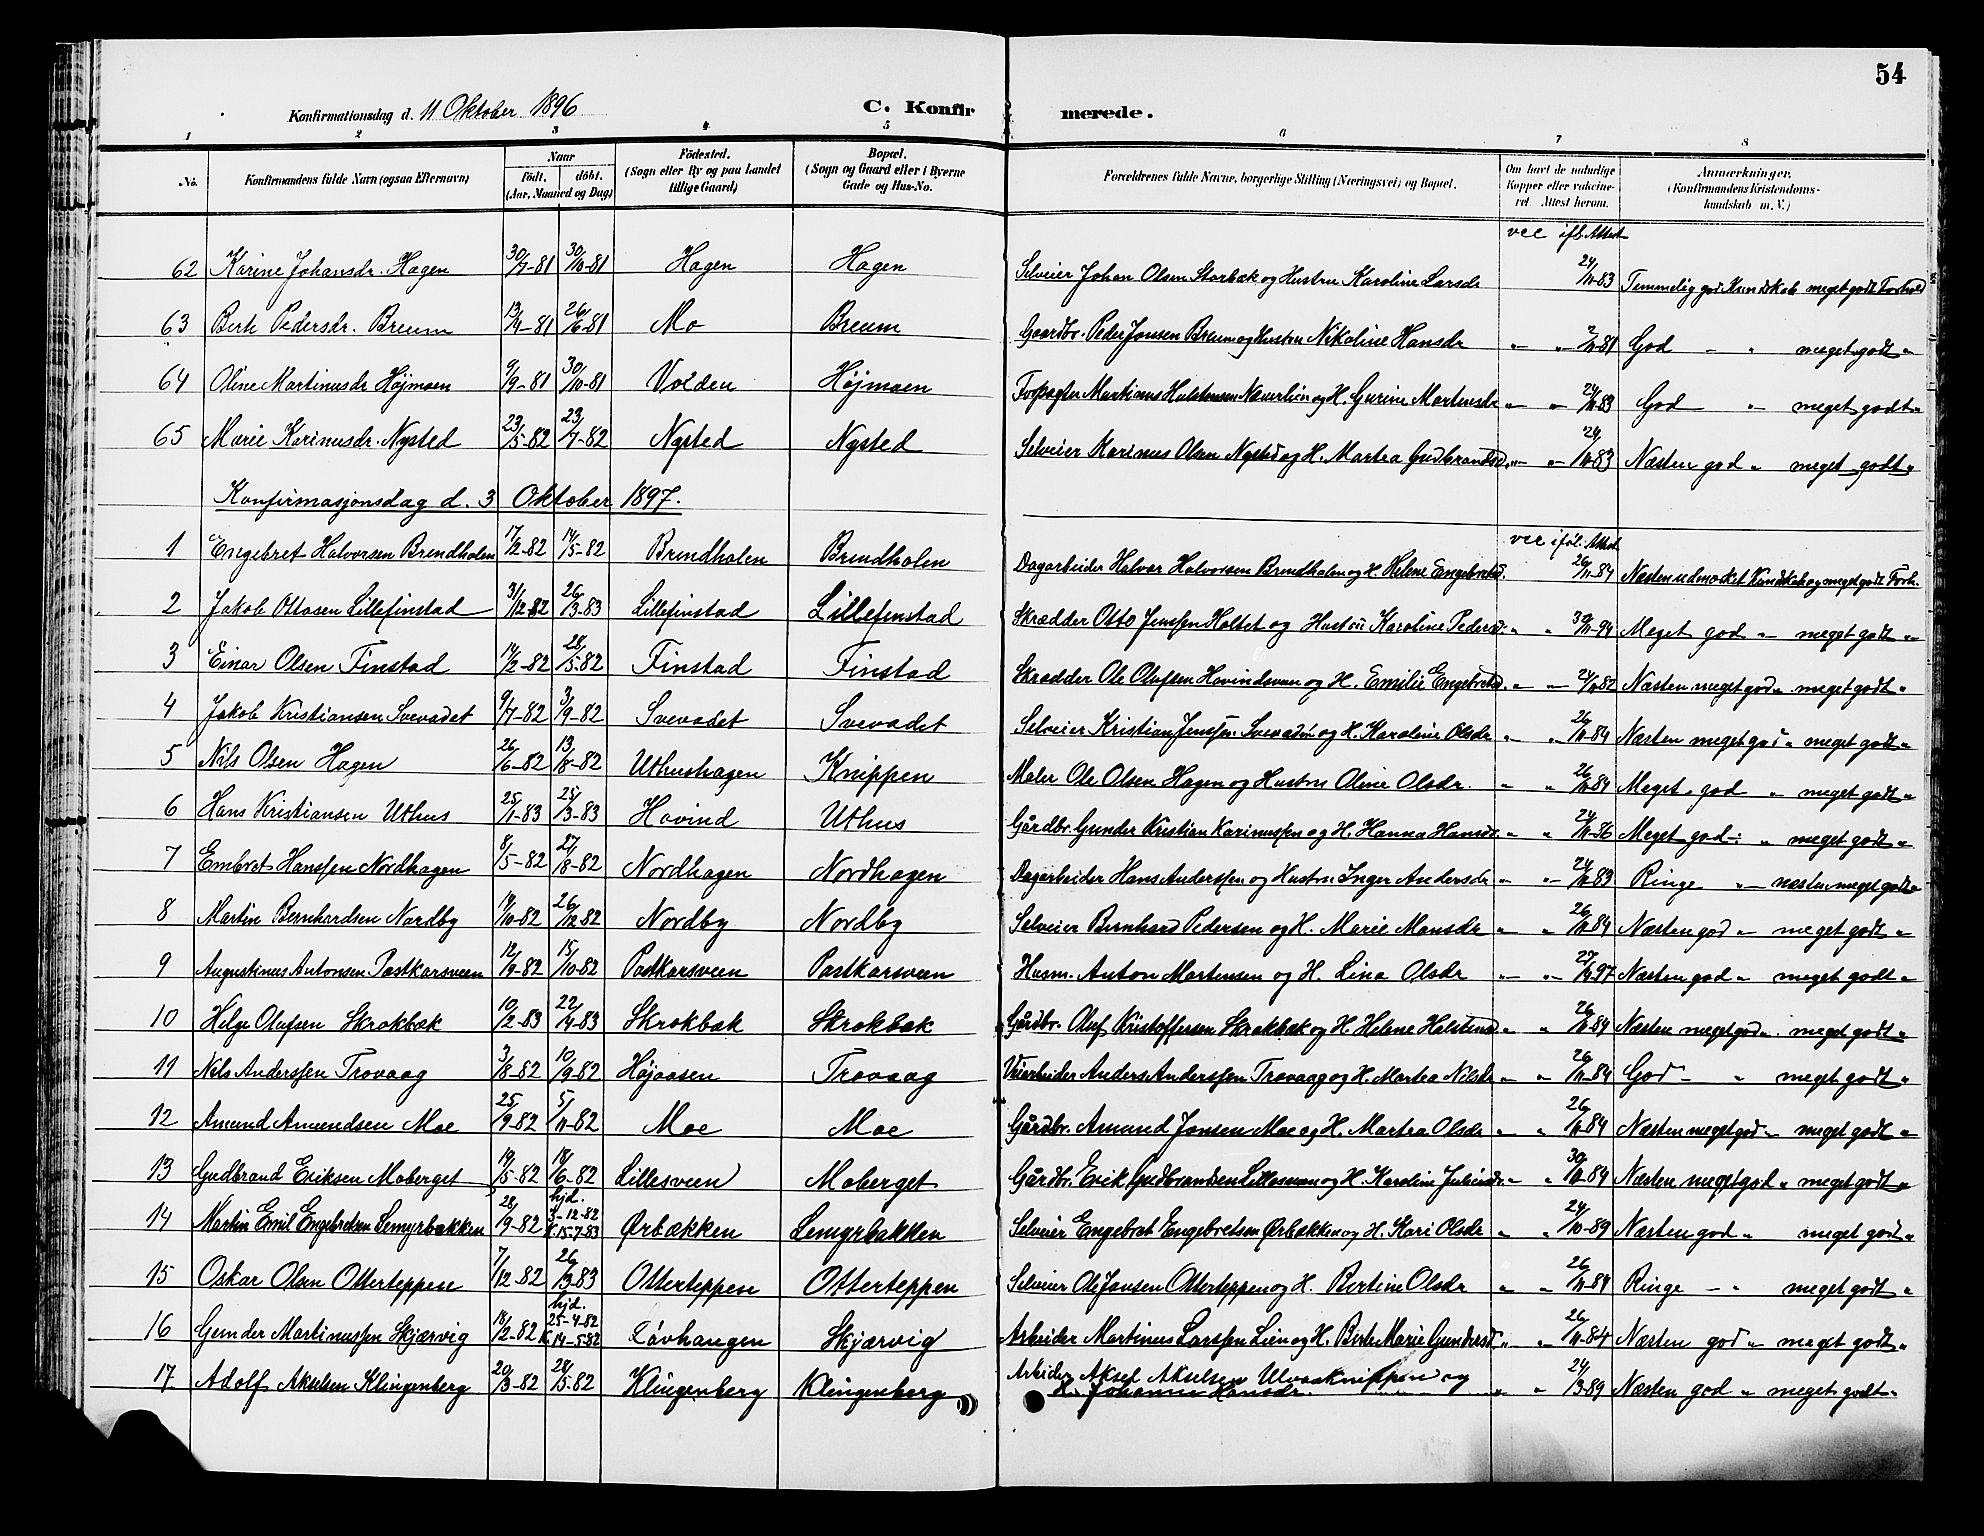 54
Konfirmationsdag d. 11 Oktober 1896 C. Konfirmerede.
1 2 3 4 5 6 7 8
No. Konfirmandens fulde Navn (ogsaa Efternavn) Naar födt. döbt. (Aar, Maaned og Dag) Födested. (Sogn eller By og paa Landet tillige Gaard) Bopæl. (Sogn og Gaard eller i Byerne Gade og Hus-No. Forældrenes fulde Navne, borgerlige Stilling (Næringsvei) og Bopæl. Om havt de naturlige Kopper eller vakcineret. Attest herom. Anmærkninger. (Konfirmandens Kristendomskundskab m. V.)
vac ifl. Attest
62 Karine Johansdr. Hagen 30/7-81 30/10-81 Hagen Hagen Selveier Johan Olsen Storbæk og Hustru Karoline Larsdr 24/10-83 Temmelig god Kundskab meget godt Forhold
63 Berte Pedersdr. Breum 13/4-81 26/6-81 Mo Breum Gaardbr. Peder Jonsen Breum og Hustru Nikoline Hansdr " " God - " meget godt "
64 Oline Martinusdr Højmoen 9/9-81 30/10-81 Volden Højmoen Forpagter Martinus Halstensen Næverlien og H. Gurine Martinsdr " " 24/10-83 God - " meget godt "
65 Marie Karinusdr. Nysted 23/5-82 23/7-82 Nysted Nysted Selveier Karinus Olsen Nysted og H. Martea Gudbrandsd. " " 24/10-83 Næsten god " meget godt "
Konfirmasjonsdag d. 3 Oktober 1897.
vac iføl. Attest
1 Engebret Halvorsen Brendholen 17/2-82 14/5-82 Brendholen Brendholen Dagarbeider Halvor Halvorsen Brendholen og H. Helene Engebretsd. 26/11-84 Næsten udmerket Kundskab og meget godt Forh.
2 Jakob Ottosen Lillefinstad 31/12-82 26/3-83 Lillefinstad Lillefinstad Skrædder Otto Jenssen Holtet og Hustru Karoline Pedersd. " " Meget god " meget godt "
3 Einar Olsen Finstad 14/2-82 28/5-82 Finstad Finstad Skrædder Ole Olufsen Hovindsveen og H. Emilie Engebretsd. " " Næsten meget god " meget godt "
4 Jakob Kristiansen Svevadet 9/7-82 3/9-82 Svevadet Svevadet Selveier Kristian Jenssen Svevadet og H. Karoline Olsdr " " 26/11-84 Næsten meget god " meget godt "
5 Nils Olsen Hagen 26/6-82 13/8-82 Uthushagen Knippen Maler Ole Olsen Hagen og Hustru Oline Olsdr. " " 26/11-84 Meget god " meget godt "
6 Hans Kristiansen Uthus 25/1-83 25/3-83 Hovind Uthus Gårdbr. Gunder Kristian Karinussen og H. Hanna Hansdr. " " Meget god " meget godt "
7 Embret Hanssen Nordhagen 8/5-82 27/8-82 Nordhagen Nordhagen Dagarbeider Hans Anderssen og Hustru Inger Andersdr " " 24/10-83 Ringe " næsten meget godt "
8 Martin Bernhardsen Nordby 14/10-82 26/12-82 Nordby Nordby Selveier Bernhard Pedersen og H. Marie Monsdr " " 26/11-84 Næsten god " meget godt "
9 Augustinus Antonsen Postkarsveen 12/9-82 15/10-82 Postkarsveen Postkarsveen Husm. Anton Martensen og H. Lina Olsdr " " Næsten god " meget godt "
10 Helge Olufsen Skrokbæk 10/2-83 22/4-83 Skrokbæk Skrokbæk Gårdbr. Oluf Kristoffersen Skrokbæk og H. Helene Halstensd. " " 26/11-84 Næsten meget god " meget godt "
11 Nils Anderssen Trovaag 3/8-82 10/9-82 Højaasen Trovaag Veiarbeider Anders Anderssen Trovaag og H. Martea Nilsdr " " 26/11-84 God - " meget godt "
12 Amund Amundsen Moe 25/9-82 5/11-82 Moe Moe Gårdbr. Amund Jonsen Moe og H. Martea Olsdr " " 26/11-84 Næsten meget god " meget godt "
13 Gudbrand Eriksen Moberget 19/5-82 18/6-82 Lillesveen Moberget Gårdbr. Erik Gudbrandsen Lillesveen og H. Karoline Juliusdr. " " Næsten meget god " meget godt "
14 Martin Emil Engebretsen Lemyrbækken 28/9-82 hjd. 3-12-82 K. 15-7-83 Ørbækken Lemyrbakken Selveier Engebret Engebretsen Ørbækken og H. Kari Olsdr " " Næsten god " meget godt "
15 Oskar Olsen Otterteppen 7/12-82 26/3-83 Otterteppen Otterteppen Selveier Ole Jonsen Otterteppen og H. Bertine Olsdr " " 26/11-84 Ringe - " meget godt "
16 Gunder Martinussen Skjærvig 18/2-82 hjd. 25-4-82 K. 14-5-82 Løvhaugen Skjærvig Arbeider Martinus Larssen Lien og H. Berte Marie Gundersd. " " 26/11-84 Næsten god " meget godt "
17 Adolf Akselsen Klingenberg 20/3-82 28/5-82 Klingenberg Klingenberg Arbeider Aksel Akselsen Ulvaaknippen og H. Johanne Hansdr. " " Næsten god " meget godt "